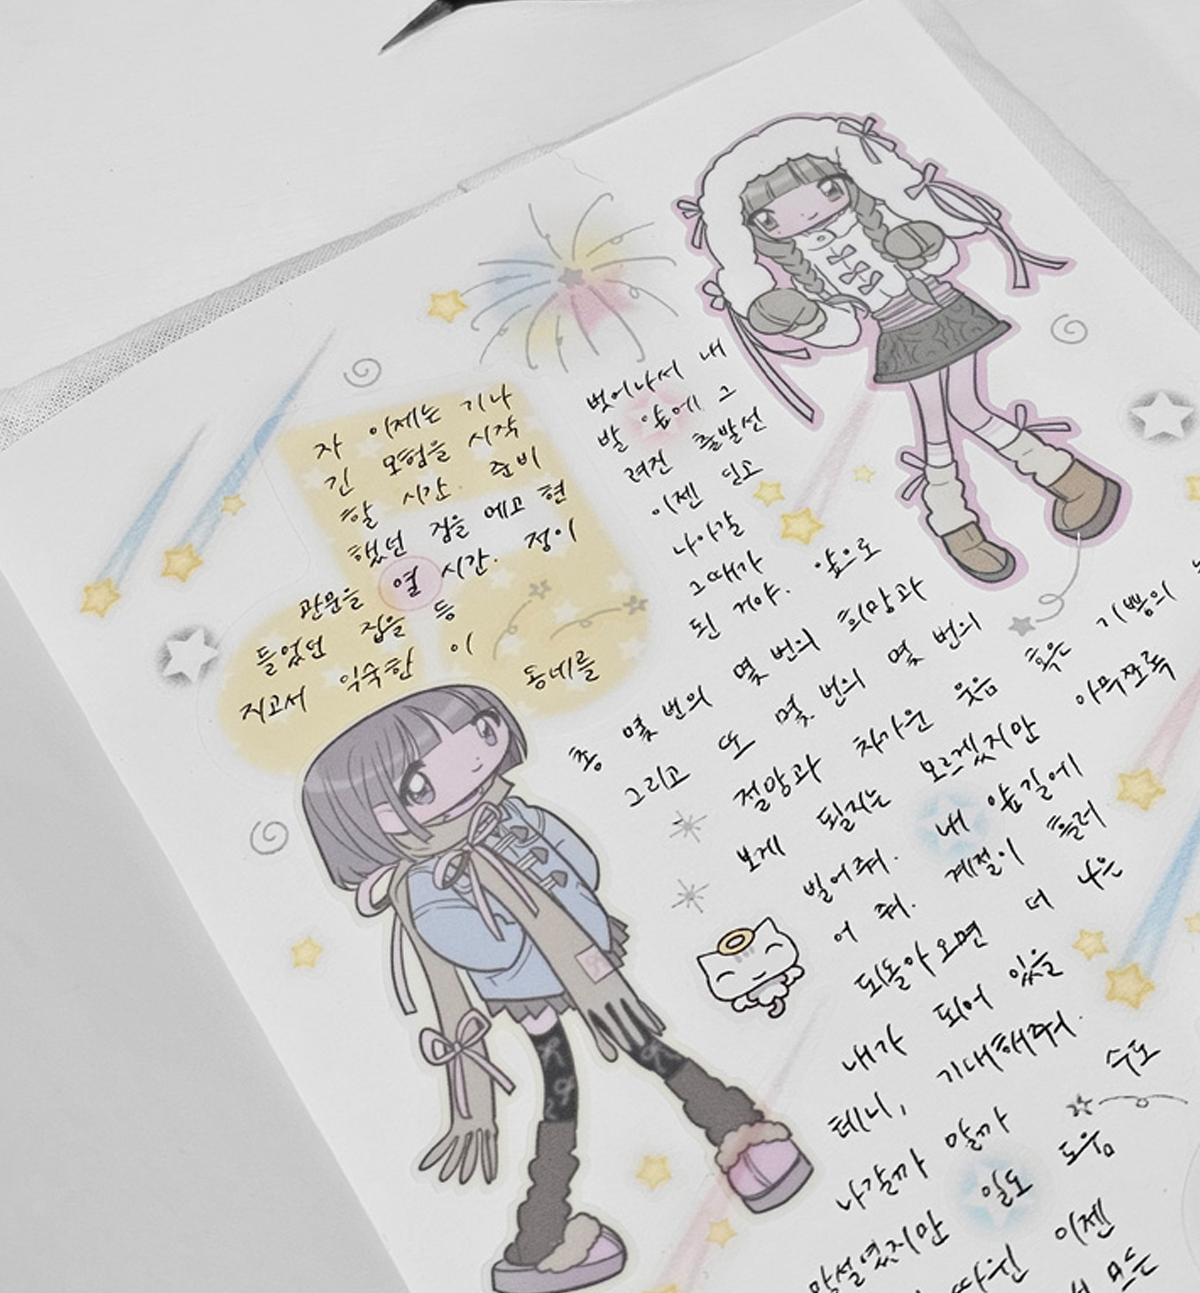 자 이제는 기나
긴 모험을 시작
할 시간. 준비
했던 짐을 메고 현
관문을 열 시간. 정이
들었던 집을 등
지고서 익숙한 이
동네를
벗어나서 내
발 앞에 그
려진 출발선
이젠 딛고
나아갈
그때가
된 거야. 앞으로
총 몇 번의 몇 번의 희망과
그리고 또 몇 번의 몇 번의
절망과 차가운 웃음 혹은 기쁨의
보게 될지는 모르겠지만 아무쪼록
빌어줘. 내 앞길에
어 줘. 계절이 흘러
되돌아오면 더 나은
내가 되어 있을
테니, 기대해줘.
나갈까 말까 수도
망설였지만 일도 도움
따윈 이젠
모든